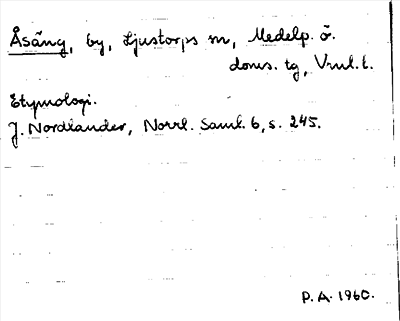 Åsäng, by, Ljustorps sn, Medelp. ö.
doms. tg, Vnl. t.
Etymologi.
J. Nordlander, Norrl. Saml. 6, s. 245.
P.A. 1960.